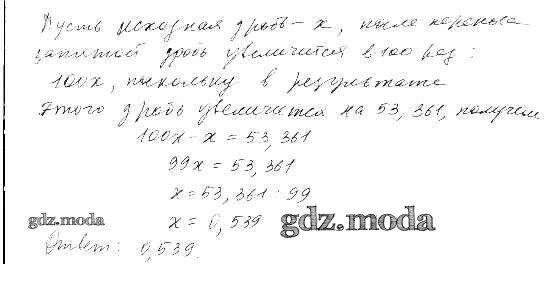 Пусть исходная дробь - x, после переноса
запятой дробь увеличится в 100 раз:
100x, поскольку в результате
этого дробь увеличится на 53,361, получаем
100x - x = 53,361
99x = 53,361
x = 53,361 : 99
x = 0,539
gdz.moda
gdz.moda
Ответ: 0,539.